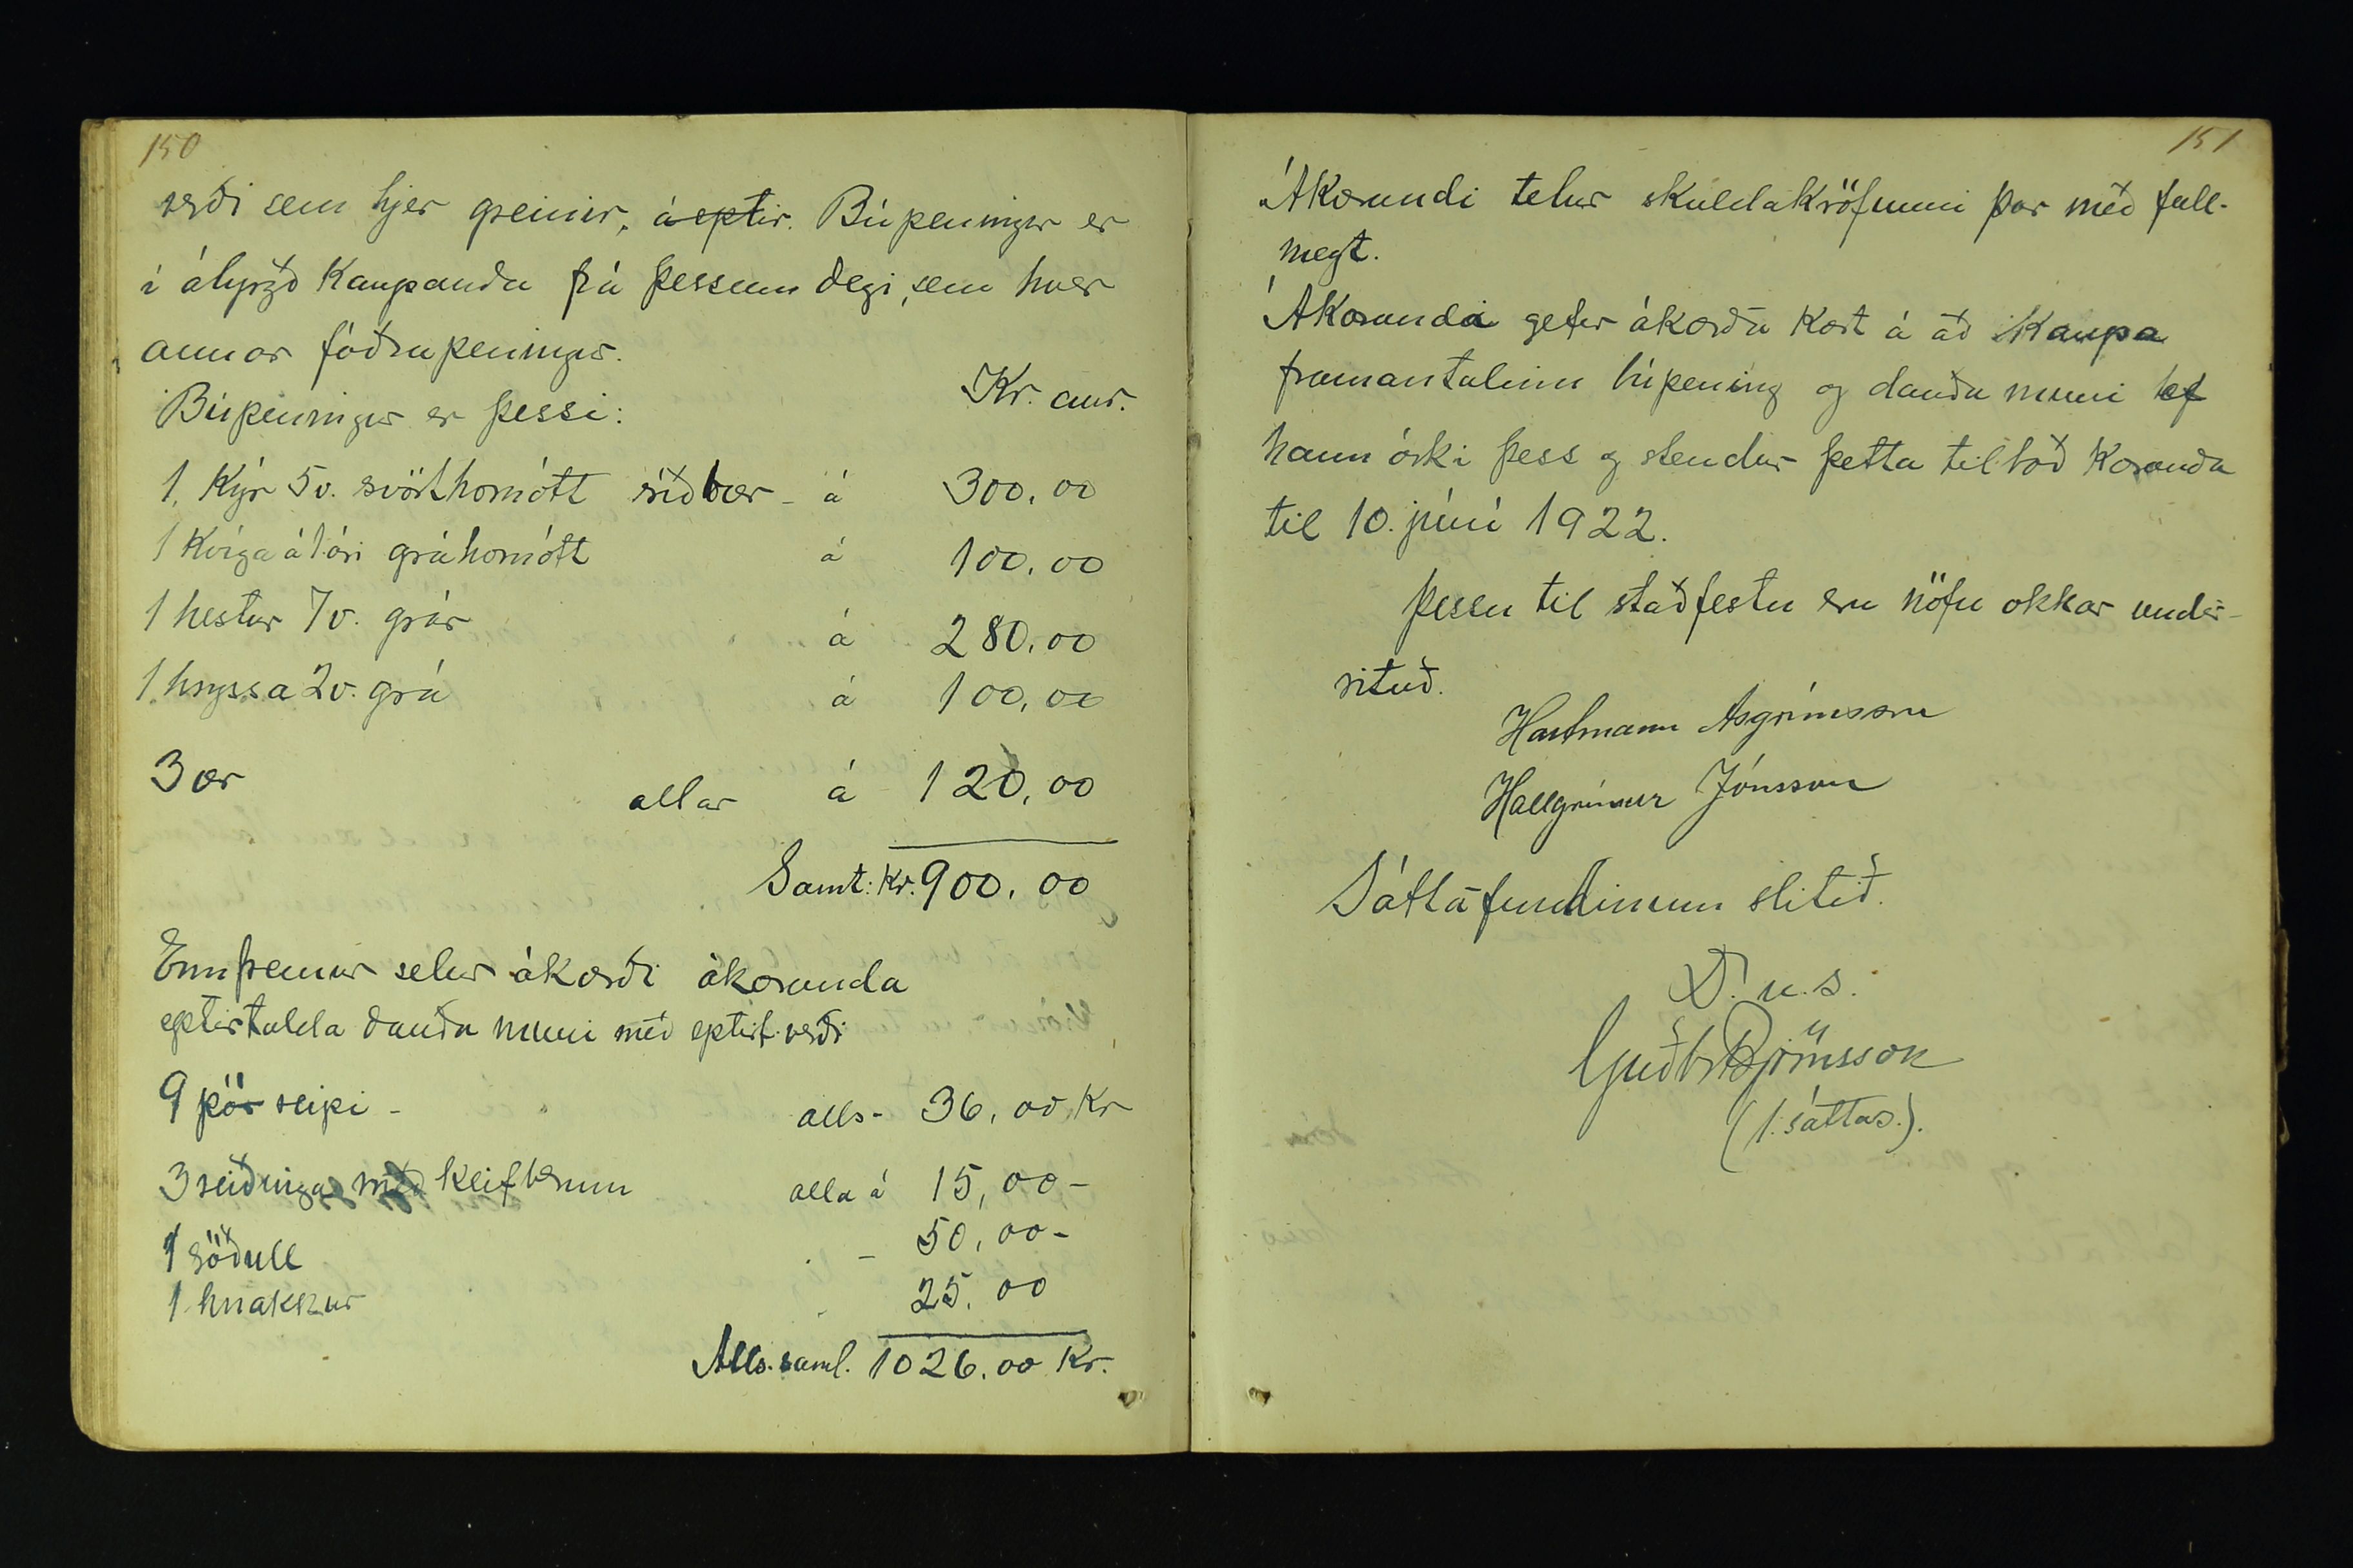 150
verði sem hjer greinir, á eptir. Búpeningur er
í ábyrgð Kaupanda frá þessum degi, sem hver
annar fóðrapeningur.
Búpeningur er þessi:
Kr. aur.
1. Kýr 5v. svörthornótt síðbær - á 300,00
1 Kvíga á 1. ári gráhornótt á 100,00
1 hestur 7v. grár á 280,00
1. hryssa 2v. grá á 100,00
3 ær allar á 120,00
Samt: Kr. 900,00
Ennfremur selur ákærði ákæranda
eptirtalda dauða muni með eptirf. verði
9 pör reipi - alls - 36,00 Kr
3 reiðinga með klifberum alla á 15,00 -
1 söðull - 50,00 -
1 hnakkur 25,00
Alls. saml. 1026,00 Kr.
151
Ákærandi telur skuldakröfunni þar með full-
nægt.
Ákæranda gefur ákærða kost á að kaupa
framantalinn búpening og dauða muni ef
hann óski þess og stendur þetta tilboð kæranda
til 10. júní 1922.
Þessu til staðfestu eru nöfn okkar undir-
rituð.
Hartmann Ásgrímsson
Hallgrímur Jónsson
Sáttafundinum slitið.
D. u. s.
Guðbr Björnsson
(1. sáttas.).